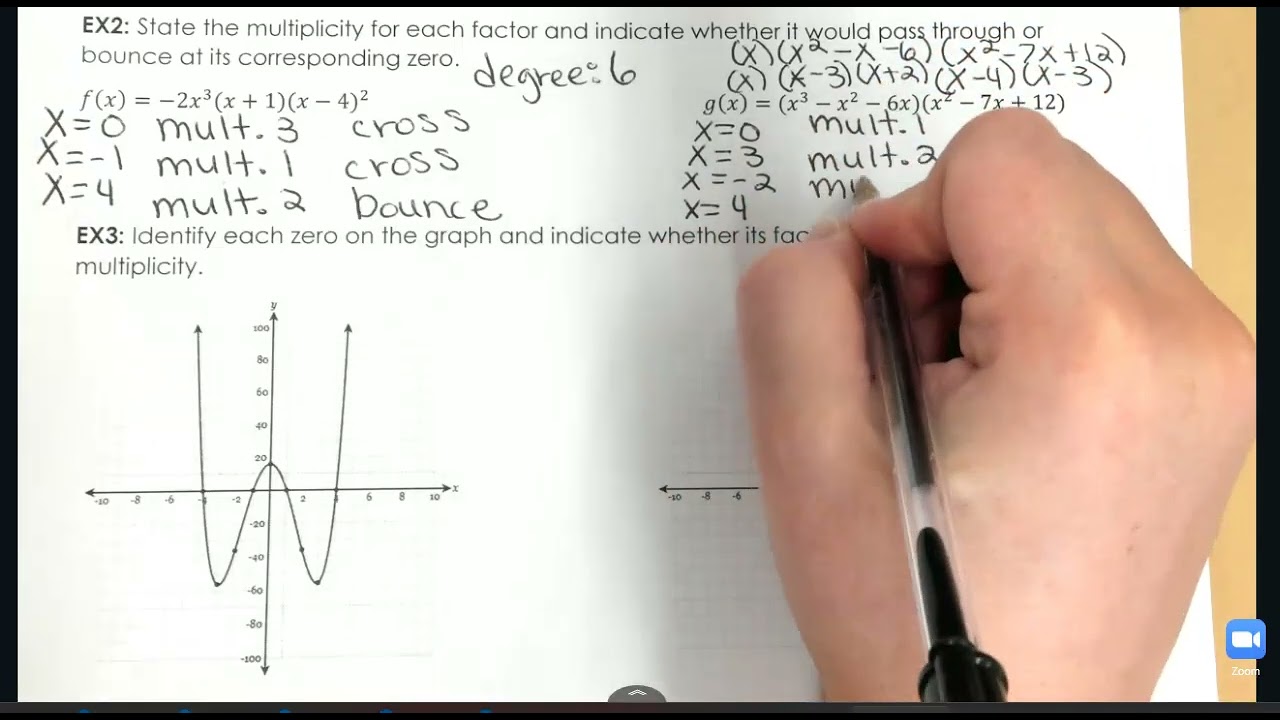 EX2: State the multiplicity for each factor and indicate whether it would pass through or
bounce at its corresponding zero.
degree: 6
f(x) = −2x³(x + 1)(x − 4)²
x=0 mult. 3 cross
x=-1 mult. 1 cross
x=4 mult. 2 bounce
(x)(x²-x-6)(x²-7x+12)
(x)(x-3)(x+2)(x-4)(x-3)
g(x) = (x³ − x² − 6x)(x² − 7x + 12)
x=0 mult. 1
x=3 mult. 2
x=-2
x=4
EX3: Identify each zero on the graph and indicate whether its
multiplicity.
y
100
80
60
40
20
-10 -8 -6 -4 -2 2 4 6 8 10 x
-20
-40
-60
-80
-100
-10 -8 -6
Zoom